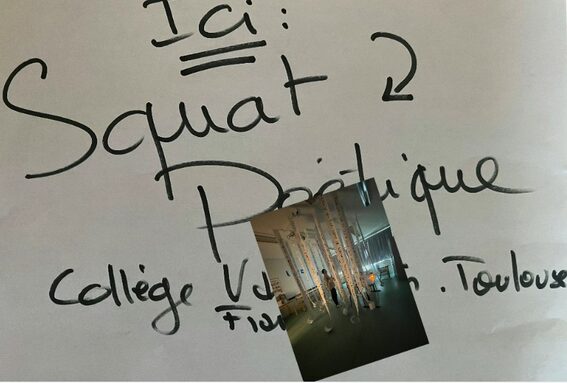 Ici :
Squat
Poétique
Collège . Toulouse